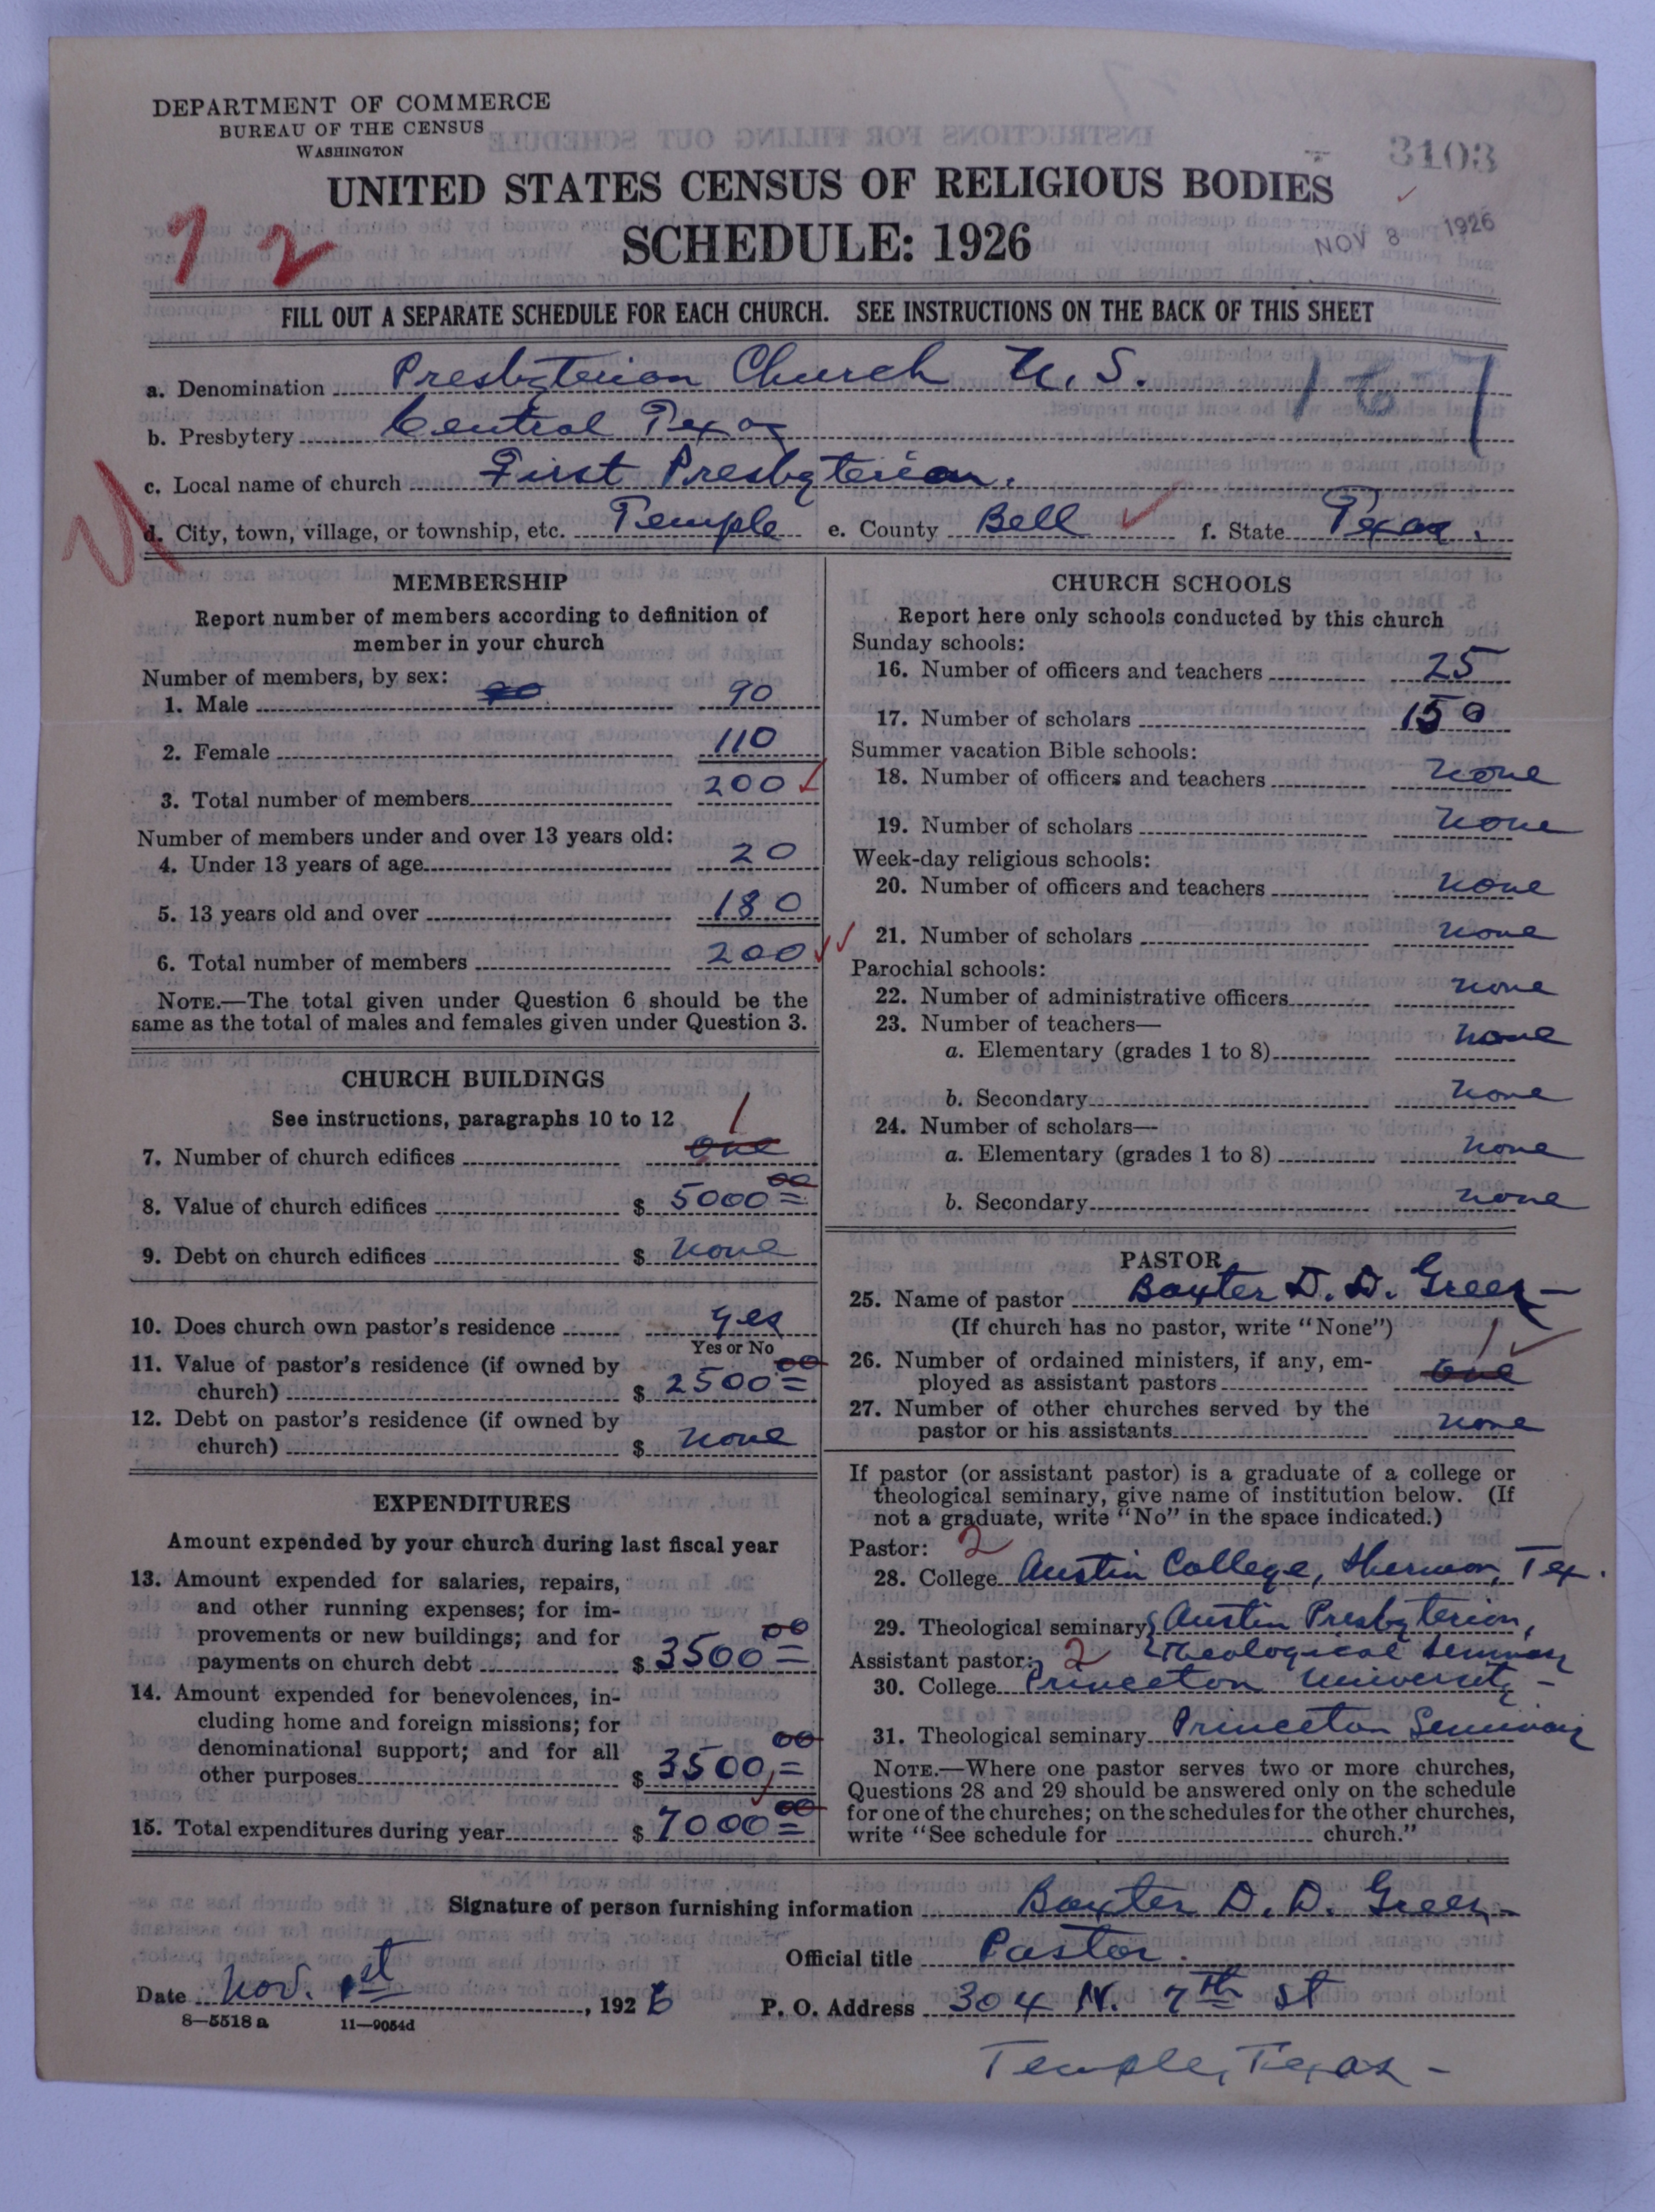 DEPARTMENT OF COMMERCE
BUREAU OF THE CENSUS
WASHINGTON
3103
UNITED STATES CENSUS OF RELIGIOUS BODIES
SCHEDULE: 1926
NOV 8 1926
72
FILL OUT A SEPARATE SCHEDULE FOR EACH CHURCH. SEE INSTRUCTIONS ON THE BACK OF THIS SHEET
a. Denomination Presbyterian Church U. S. 167
b. Presbytery Central Texas
c. Local name of church First Presbyterian.
d. City, town, village, or township, etc. Temple e. County Bell f. State Texas.
MEMBERSHIP
Report number of members according to definition of
member in your church
Number of members, by sex:
1. Male 90 90
2. Female 110
3. Total number of members 200
Number of members under and over 13 years old:
4. Under 13 years of age 20
5. 13 years old and over 180
6. Total number of members 200
NOTE.—The total given under Question 6 should be the
same as the total of males and females given under Question 3.
CHURCH BUILDINGS
See instructions, paragraphs 10 to 12
7. Number of church edifices one 1
8. Value of church edifices $ 5000 00
9. Debt on church edifices $ none
10. Does church own pastor's residence yes
Yes or No
11. Value of pastor's residence (if owned by
church) $ 2500 00
12. Debt on pastor's residence (if owned by
church) $ none
EXPENDITURES
Amount expended by your church during last fiscal year
13. Amount expended for salaries, repairs,
and other running expenses; for im-
provements or new buildings; and for
payments on church debt $ 3500 00
14. Amount expended for benevolences, in-
cluding home and foreign missions; for
denominational support; and for all
other purposes $ 3500 00
15. Total expenditures during year $ 7000 00
CHURCH SCHOOLS
Report here only schools conducted by this church
Sunday schools:
16. Number of officers and teachers 25
17. Number of scholars 150
Summer vacation Bible schools:
18. Number of officers and teachers none
19. Number of scholars none
Week-day religious schools:
20. Number of officers and teachers none
21. Number of scholars none
Parochial schools:
22. Number of administrative officers none
23. Number of teachers—
a. Elementary (grades 1 to 8) none
b. Secondary none
24. Number of scholars—
a. Elementary (grades 1 to 8) none
b. Secondary none
PASTOR
25. Name of pastor Baxter D. D. Green
(If church has no pastor, write "None")
26. Number of ordained ministers, if any, em-
ployed as assistant pastors one 1
27. Number of other churches served by the
pastor or his assistants none
If pastor (or assistant pastor) is a graduate of a college or
theological seminary, give name of institution below. (If
not a graduate, write "No" in the space indicated.)
Pastor: 2
28. College Austin College, Sherman, Tex.
29. Theological seminary Austin Presbyterian,
Theological Seminary
Assistant pastor: 2
30. College Princeton University -
31. Theological seminary Princeton Seminary
NOTE.—Where one pastor serves two or more churches,
Questions 28 and 29 should be answered only on the schedule
for one of the churches; on the schedules for the other churches,
write "See schedule for church."
Signature of person furnishing information Baxter D. D. Green
Official title Pastor.
Date Nov. 1st, 1926 P. O. Address 304 N. 7th St
8—5518a 11—9054d
Temple, Texas -